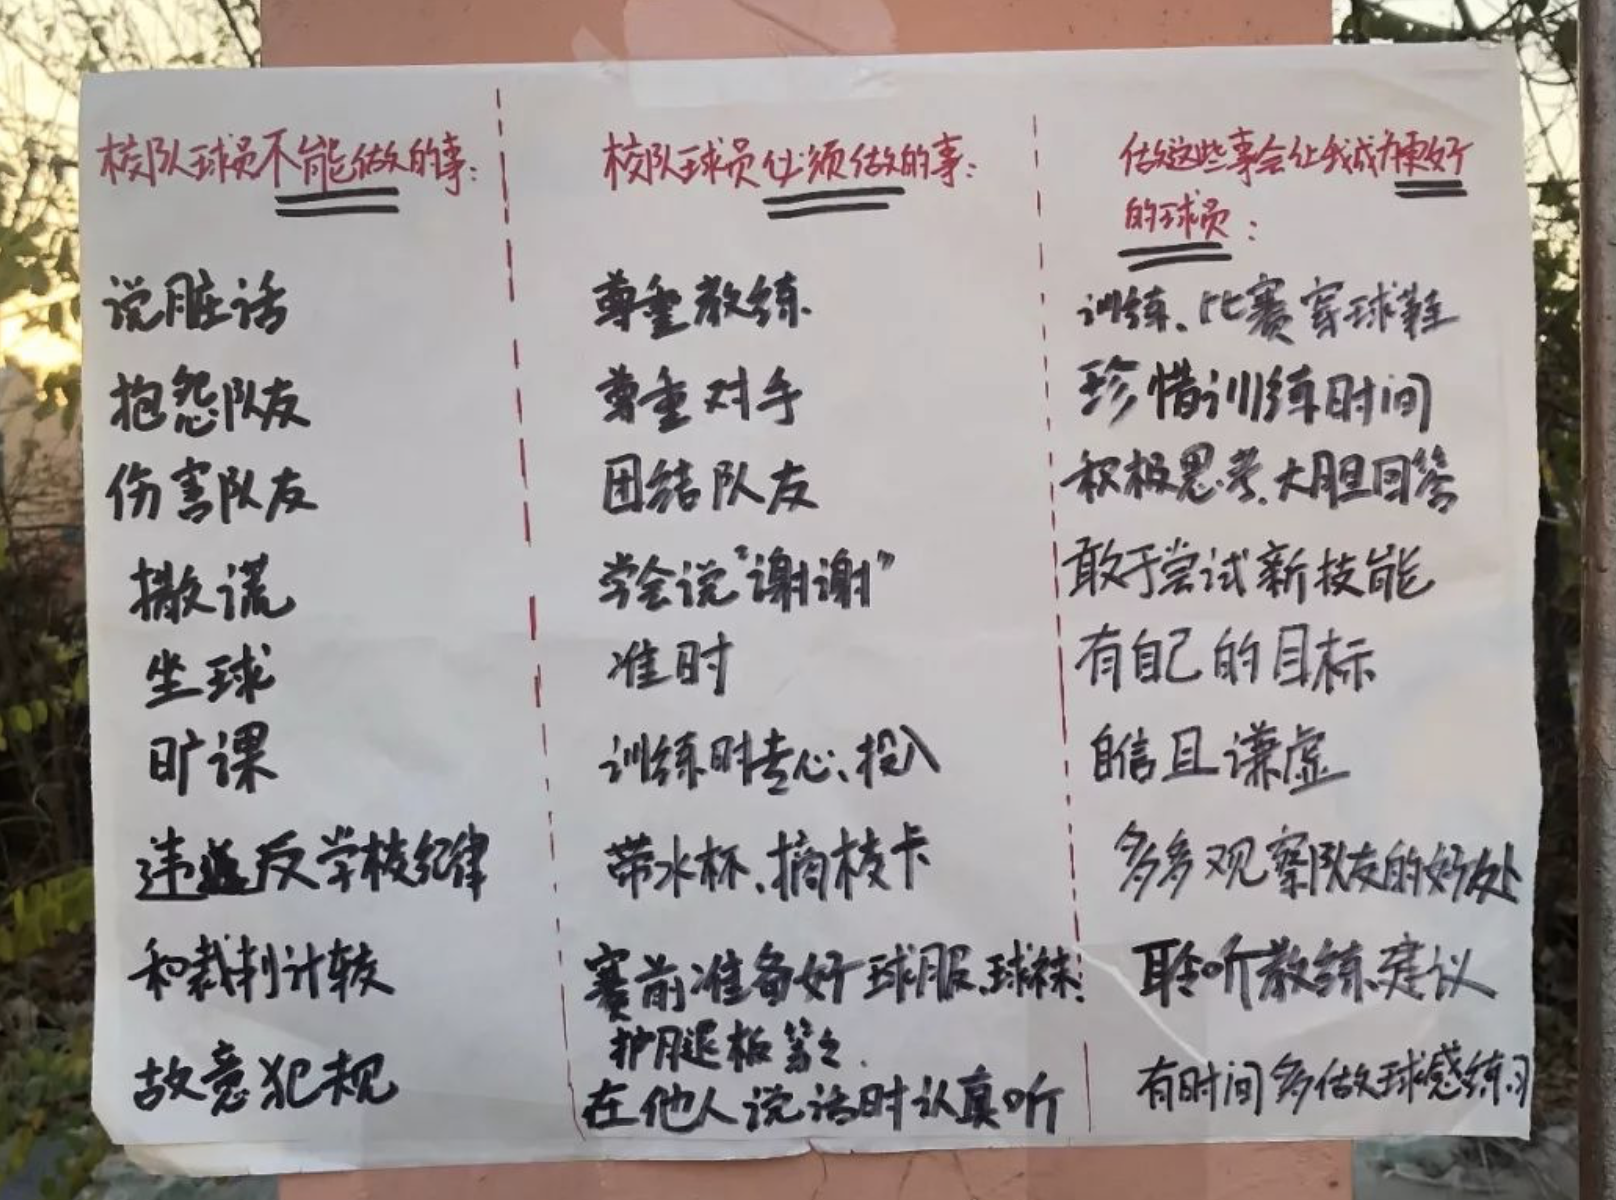 校队球员不能做的事：
说脏话
抱怨队友
伤害队友
撒谎
坐球
旷课
违反学校纪律
和裁判计较
故意犯规
校队球员必须做的事：
尊重教练.
尊重对手
团结队友
学会说“谢谢”
准时
训练时专心、投入
带水杯、摘校卡
赛前准备好球服、球袜.
护腿板等.
在他人说话时认真听
做这些事会让我成为更好
的球员：
训练、比赛穿球鞋
珍惜训练时间
积极思考、大胆回答
敢于尝试新技能
有自己的目标
自信且谦虚
多多观察队友的好处
聆听教练建议
有时间多做球感练习